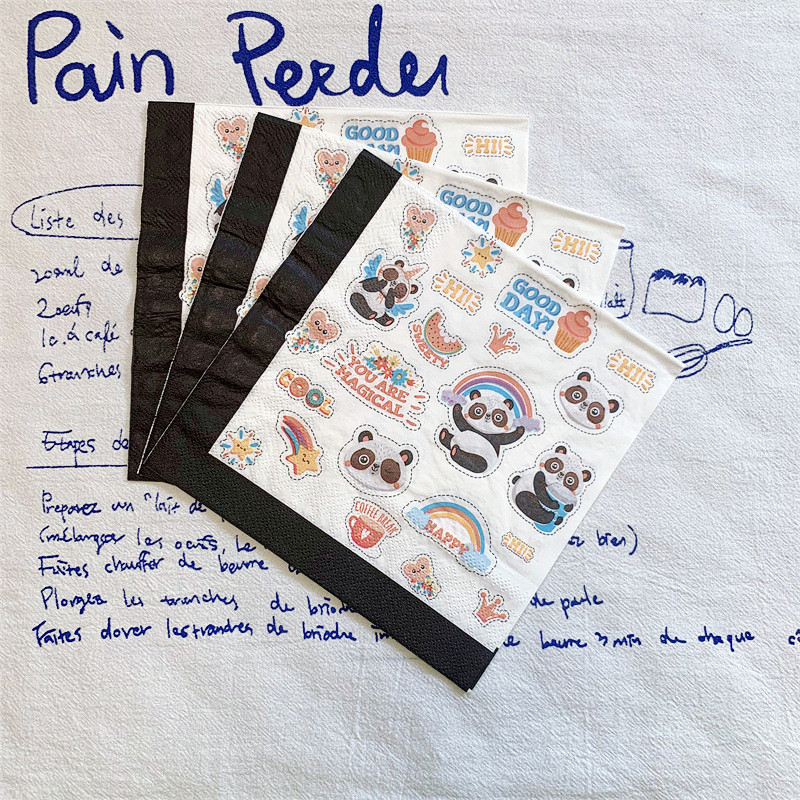 Pain Perdu
Liste des
20ml de
2 oeufs
1c. à café
6 tranches
Etapes de
Préparez un "lait de
(mélanger les oeufs, le bien)
Faites chauffer de beurre
Plongez les tranches de brioche de
Faites dorer les tranches de brioche beurre 3 min de chaque
GOOD
DAY!
HI!
GOOD
DAY!
HI!
GOOD
DAY!
HI!
HI!
SWEETY!
YOU ARE
MAGICAL
COOL
COFFEE BREAK
HAPPY
HI!